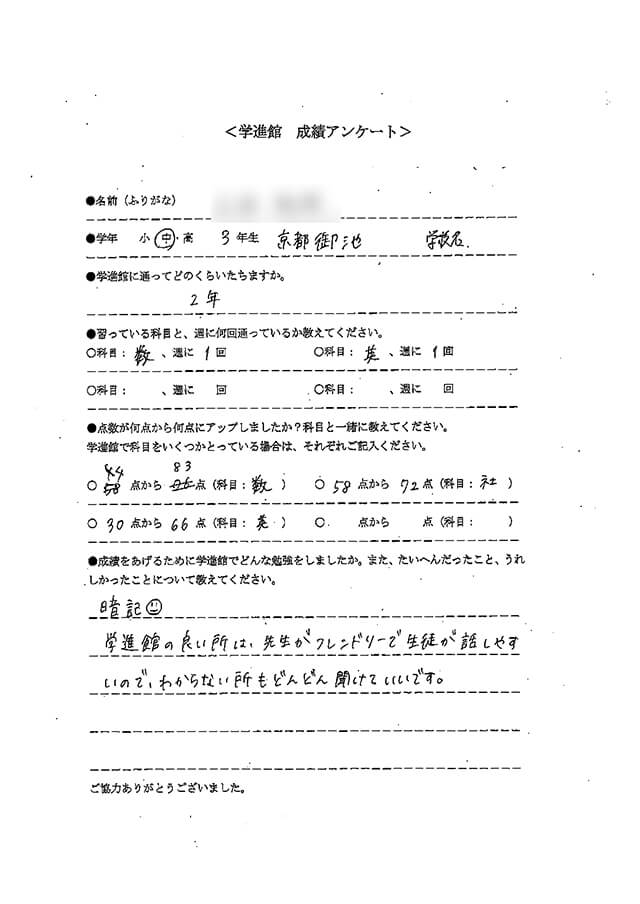 ＜学進館　成績アンケート＞
●名前（ふりがな）
●学年　小・中・高　3年生　京都御池　学校名.
●学進館に通ってどのくらいたちますか。
2年
●習っている科目と、週に何回通っているか教えてください。
○科目：数、週に1回　○科目：英、週に1回
○科目：　、週に　回　○科目：　、週に　回
●点数が何点から何点にアップしましたか？科目と一緒に教えてください。
学進館で科目をいくつかとっている場合は、それぞれご記入ください。
44　83
○58点から　点（科目：数）　○58点から72点（科目：社）
○30点から66点（科目：英）　○　点から　点（科目：　）
●成績をあげるために学進館でどんな勉強をしましたか。また、たいへんだったこと、うれ
しかったことについて教えてください。
暗記
学進館の良い所は、先生がフレンドリーで生徒が話しやす
いので、わからない所もどんどん聞けていいです。
ご協力ありがとうございました。